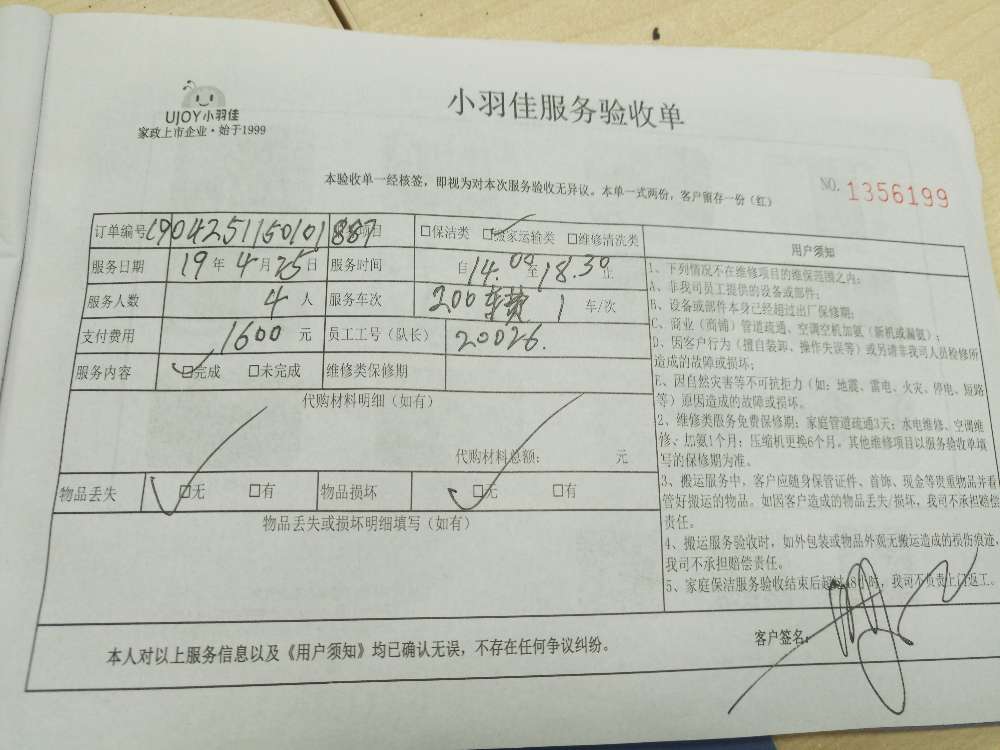 UJOY小羽佳
家政上市企业·始于1999
小羽佳服务验收单
本验收单一经核签，即视为对本次服务验收无异议。本单一式两份，客户留存一份（红）
NO. 1356199
订单编号 1904251150101887 项目 □保洁类 □搬家运输类 □维修清洗类
服务日期 19年4月25日 服务时间 自14.00至18.30止
服务人数 4人 服务车次 200车费 1 车/次
支付费用 1600 元 员工工号（队长） 20026.
服务内容 □完成 □未完成 维修类保修期
代购材料明细（如有）
代购材料总额： 元
物品丢失 □无 □有 物品损坏 □无 □有
物品丢失或损坏明细填写（如有）
用户须知
1、下列情况不在维修项目的维保范围之内：
A、非我司员工提供的设备或部件；
B、设备或部件本身已经超过出厂保修期；
C、商业（商铺）管道疏通、空调空机加氨（新机或漏氨）；
D、因客户行为（擅自装卸、操作失误等）或另请非我司人员检修所
造成的故障或损坏；
E、因自然灾害等不可抗拒力（如：地震、雷电、火灾、停电、短路
等）原因造成的故障或损坏。
2、维修类服务免费保修期：家庭管道疏通3天；水电维修、空调维
修、加氨1个月；压缩机更换6个月，其他维修项目以服务验收单填
写的保修期为准。
3、搬运服务中，客户应随身保管证件、首饰、现金等贵重物品并看
管好搬运的物品。如因客户造成的物品丢失/损坏，我司不承担赔偿
责任。
4、搬运服务验收时，如外包装或物品外观无搬运造成的损伤痕迹，
我司不承担赔偿责任。
5、家庭保洁服务验收结束后超过48小时，我司不负责上门返工。
本人对以上服务信息以及《用户须知》均已确认无误，不存在任何争议纠纷。
客户签名：